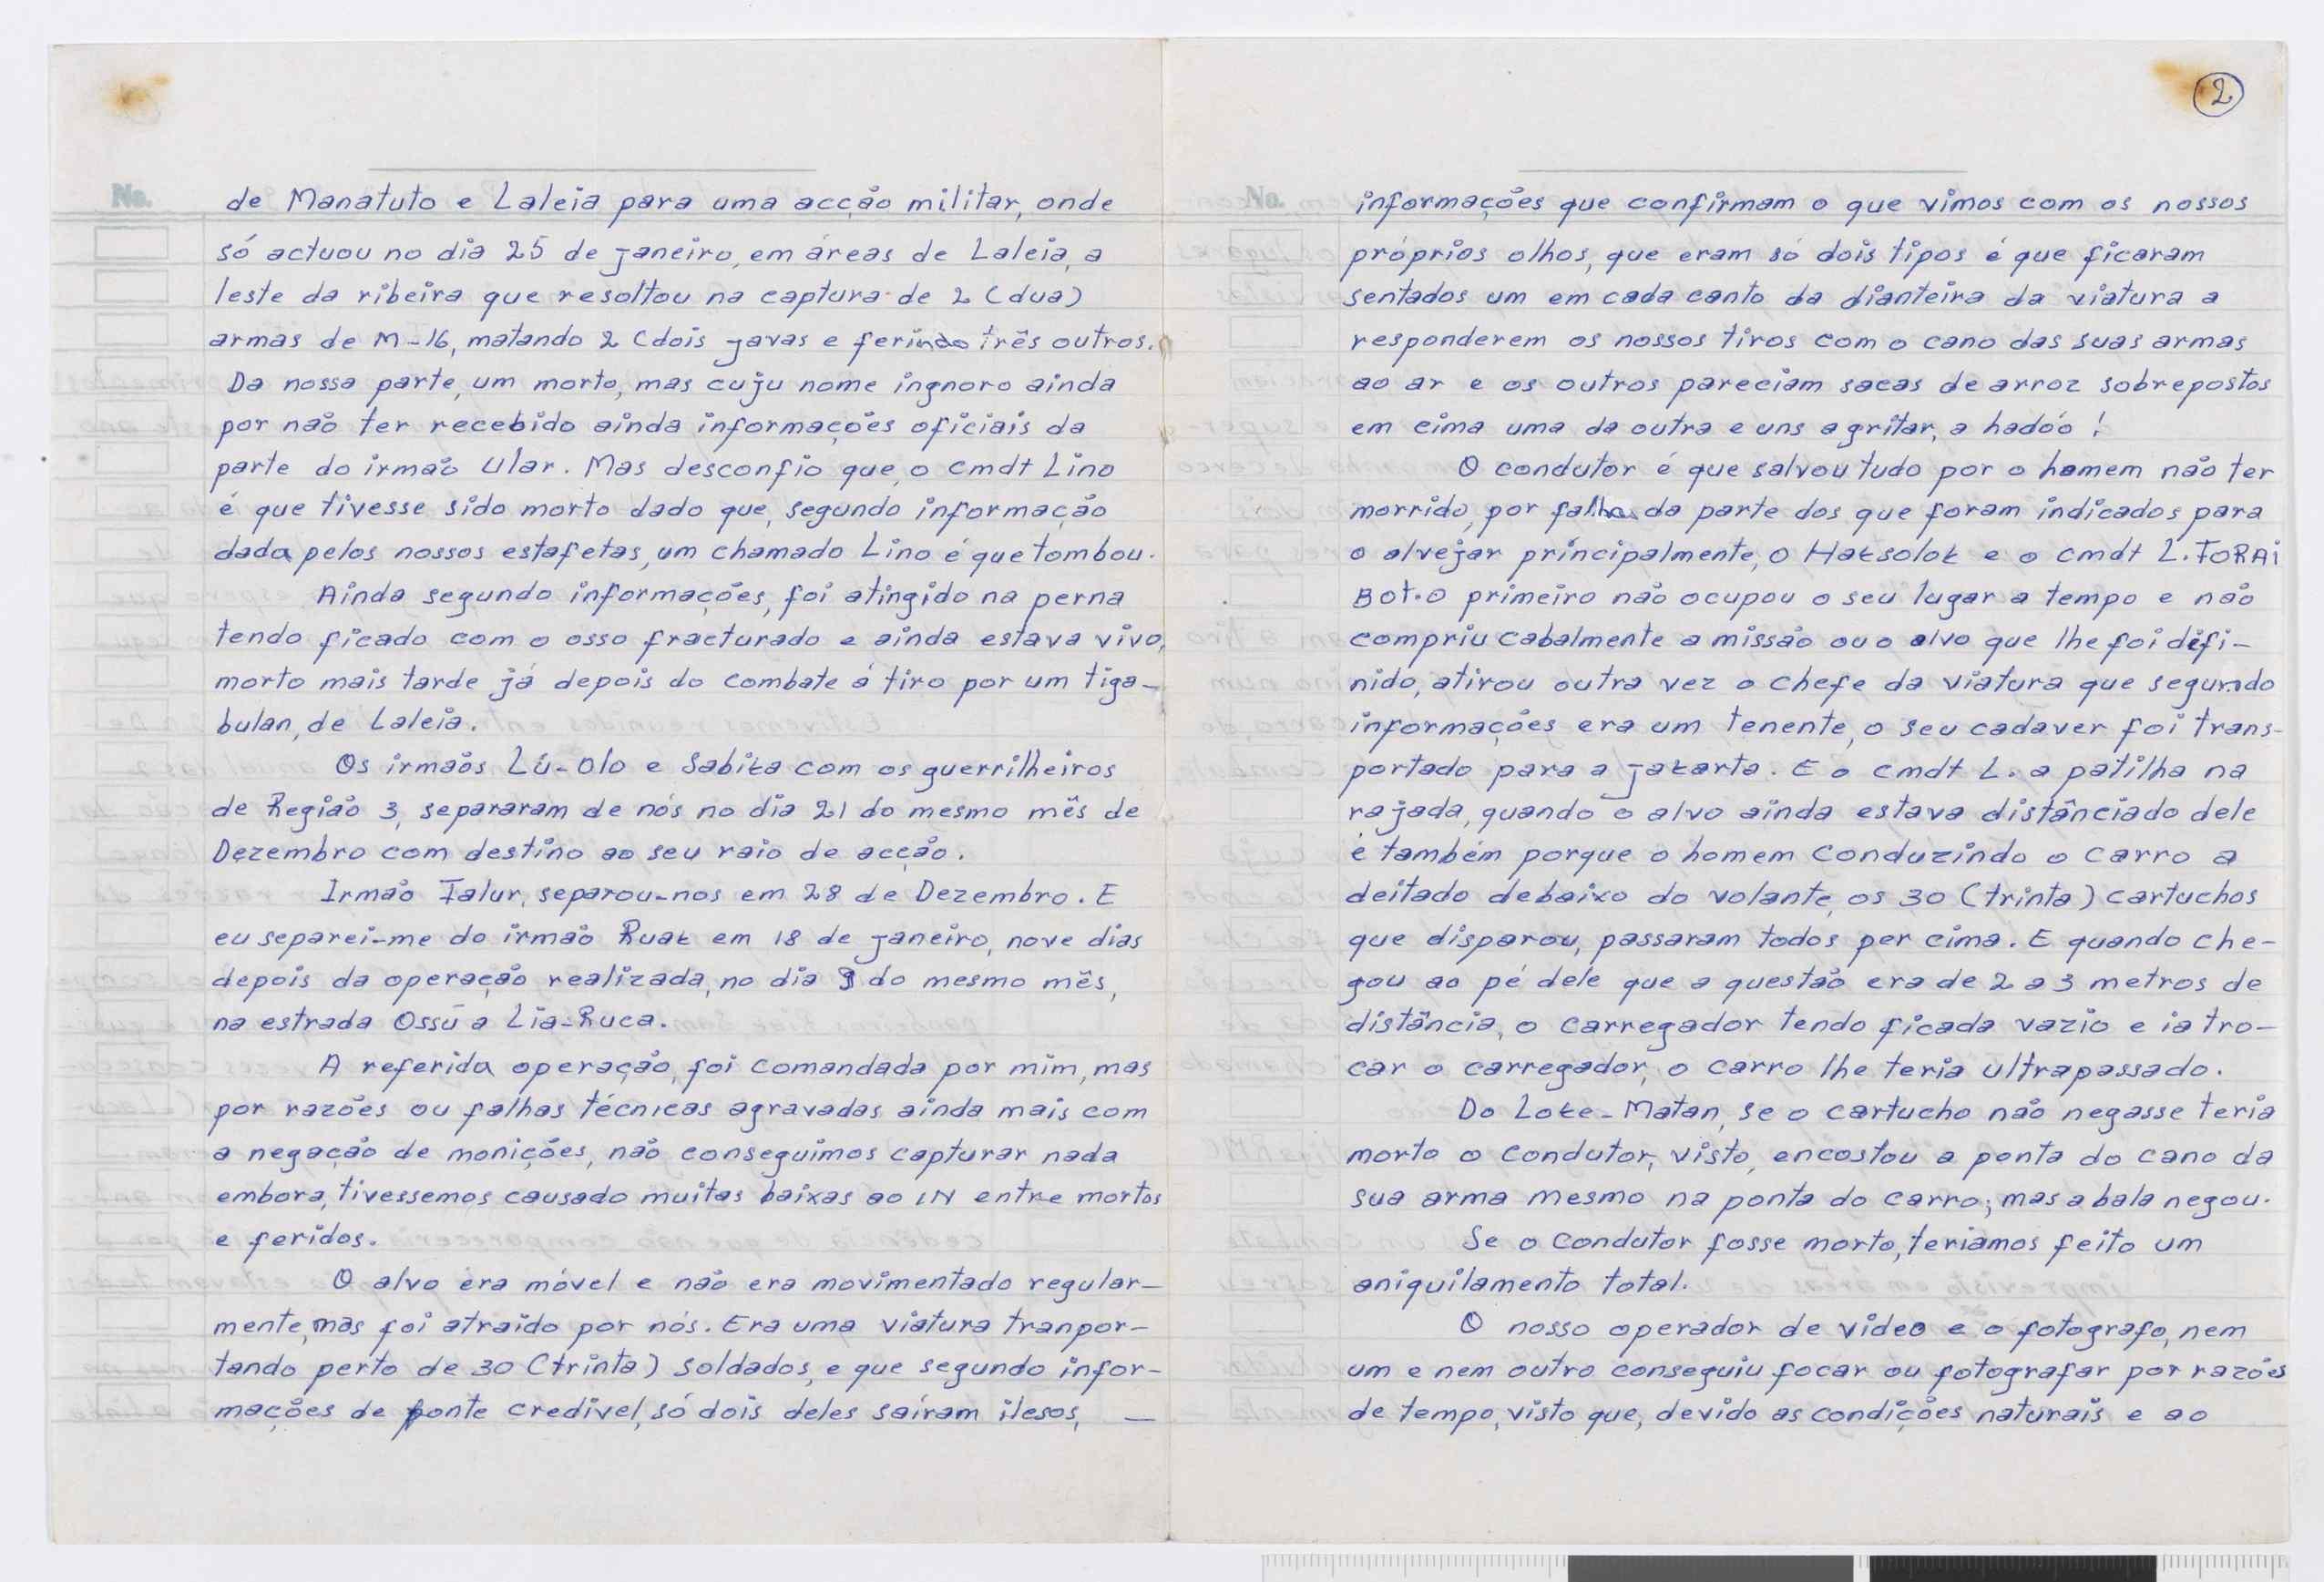 No.
de Manatuto e Laleia para uma acção militar, onde
só actuou no dia 25 de janeiro, em áreas de Laleia, a
leste da ribeira que resoltou na captura de 2 (dua)
armas de M-16, matando 2 (dois javas e ferindo três outros.
Da nossa parte, um morto, mas cuju nome ingnoro ainda
por não ter recebido ainda informações oficiais da
parte do irmão Ular. Mas desconfio que, o cmdt Lino
é que tivesse sido morto dado que, segundo informação
dada pelos nossos estafetas, um chamado Lino é que tombou.
Ainda segundo informações, foi atingido na perna
tendo ficado com o osso fracturado e ainda estava vivo,
morto mais tarde já depois do combate á tiro por um tiga-
bulan, de Laleia.
Os irmaõs Lú-Olo e Sabika com os guerrilheiros
de Região 3, separaram de nós no dia 21 do mesmo mês de
Dezembro com destino ao seu raio de acção.
Irmão Falur, separou-nos em 28 de Dezembro. E
eu separei-me do irmão Ruak em 18 de janeiro, nove dias
depois da operação realizada, no dia 9 do mesmo mês,
na estrada Ossú a Lia-Ruca.
A referida operação, foi comandada por mim, mas
por razões ou falhas técnicas agravadas ainda mais com
a negação de monições, não conseguimos capturar nada
embora, tivessemos causado muitas baixas ao IN entre mortos
e feridos.
O alvo era móvel e não era movimentado regular-
mente, mas foi atraido por nós. Era uma viatura tranpor-
tando perto de 30 (trinta) soldados, e que segundo infor-
mações de fonte credivel, só dois deles saíram ilesos, —
2
No.
informações que confirmam o que vimos com os nossos
próprios olhos, que eram só dois tipos é que ficaram
sentados um em cada canto da dianteira da viatura a
responderem os nossos tiros com o cano das suas armas
ao ar e os outros pareciam sacas de arroz sobrepostos
em cima uma da outra e uns a gritar, a hadóo !
O condutor é que salvou tudo por o homem não ter
morrido, por falha da parte dos que foram indicados para
o alvejar principalmente, o Haksolok e o cmdt L. FORAI
BOT. O primeiro não ocupou o seu lugar a tempo e não
compriu cabalmente a missão ou o alvo que lhe foi difi-
nido, atirou outra vez o chefe da viatura que segundo
informações era um tenente, o seu cadaver foi trans-
portado para a jakarta. E o cmdt L. a patilha na
rajada, quando o alvo ainda estava distânciado dele
e também porque o homem conduzindo o carro a
deitado debaixo do volante, os 30 (trinta) cartuchos
que disparou, passaram todos per cima. E quando che-
gou ao pé dele que a questão era de 2 a 3 metros de
distância, o carregador tendo ficada vazio e ia tro-
car o carregador, o carro lhe teria ultrapassado.
Do Loke-Matan, se o cartucho não negasse teria
morto o condutor, visto, encostou a ponta do cano da
sua arma mesmo na ponta do carro; mas a bala negou.
Se o condutor fosse morto, teriamos feito um
aniquilamento total.
O nosso operador de video e o fotografo, nem
um e nem outro conseguiu focar ou fotografar por razões
de tempo, visto que, devido as condições naturais e ao